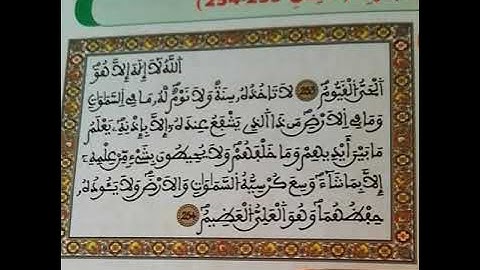 اَ۬للَّهُ لَآ إِلَٰهَ إِلَّا هُوَ
اَ۬لْحَيُّ اُ۬لْقَيُّومُ 253 لَا تَاخُذُهُۥ سِنَةٞ وَلَا نَوْمٞ لَّهُۥ مَا فِے اِ۬لسَّمَٰوَٰتِ
وَمَا فِے اِ۬لَارْضِ مَن ذَا اَ۬لذِے يَشْفَعُ عِندَهُۥٓ إِلَّا بِإِذْنِهِۦ يَعْلَمُ
مَا بَيْنَ أَيْدِيهِمْ وَمَا خَلْفَهُمْ وَلَا يُحِيطُونَ بِشَےْءٖ مِّنْ عِلْمِهِۦٓ
إِلَّا بِمَا شَآءَ وَسِعَ كُرْسِيُّهُ اُ۬لسَّمَٰوَٰتِ وَالَارْضَ وَلَا يَـُٔودُهُۥ
حِفْظُهُمَا وَهُوَ اَ۬لْعَلِيُّ اُ۬لْعَظِيمُ 254